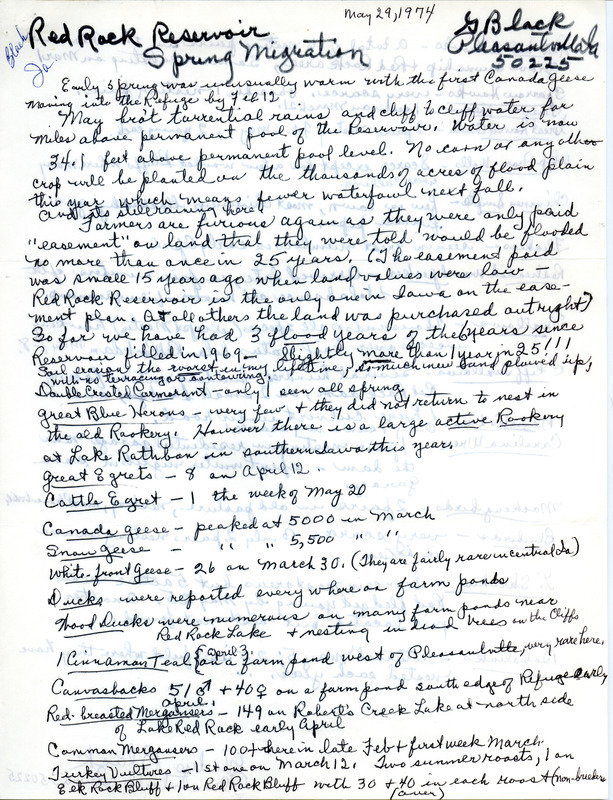 May 29, 1974
Black
Ia
Red Rock Reservoir
Spring Migration
G Black
Pleasantville Ia
50225
Early spring was unusually warm with the first Canada Geese
moving into the Refuge by Feb 12
May bro't torrential rains and cliff to cliff water for
miles above permanent pool of the Reservoir. Water is now
34.1 feet above permanent pool level. No corn or any other
crop will be planted on the thousands of acres of flood plain
this year which means fewer waterfowl next fall.
And its still raining here!
Farmers are furious again as they were only paid
"easement" on land that they were told would be flooded
no more than once in 25 years. (The easement paid
was small 15 years ago when land values were low —
Red Rock Reservoir is the only one in Iowa on the ease-
ment plan. At all others the land was purchased outright)
So far we have had 3 flood years of the years since
Reservoir filled in 1969 — Slightly more than 1 year in 25!!!
Soil erosion the worst in my lifetime, so much new land plowed up,
with no terracing or contouring!
Double Crested Cormorant - only 1 seen all spring
Great Blue Herons - very few & they did not return to nest in
the old Rookery. However there is a large active Rookery
at Lake Rathbon in southern Iowa this year.
Great Egrets - 8 on April 12.
Cattle Egret - 1 the week of May 20
Canada geese - peaked at 5000 in March
Snow Geese - " " 5,500 " "
White-front Geese - 26 on March 30. (They are fairly rare in central Ia)
Ducks were reported everywhere on farm ponds
Wood Ducks were numerous on many farm ponds near
Red Rock Lake & nesting in dead trees on the Cliffs
1 Cinnamon Teal {April 3} on a farm pond west of Pleasantville, very rare here.
Canvasbacks 51♂ + 40♀ on a farm pond south edge of Refuge early
April.
Red-breasted Mergansers - 149 on Robert's Creek Lake at north side
of Lake Red Rock early April
Common Mergansers - 100+ here in late Feb & first week March
Turkey Vultures - 1st one on March 12. Two summer roosts, 1 on
Elk Rock Bluff & 1 on Red Rock Bluff with 30 + 40 in each roost (non-breeders
(over)